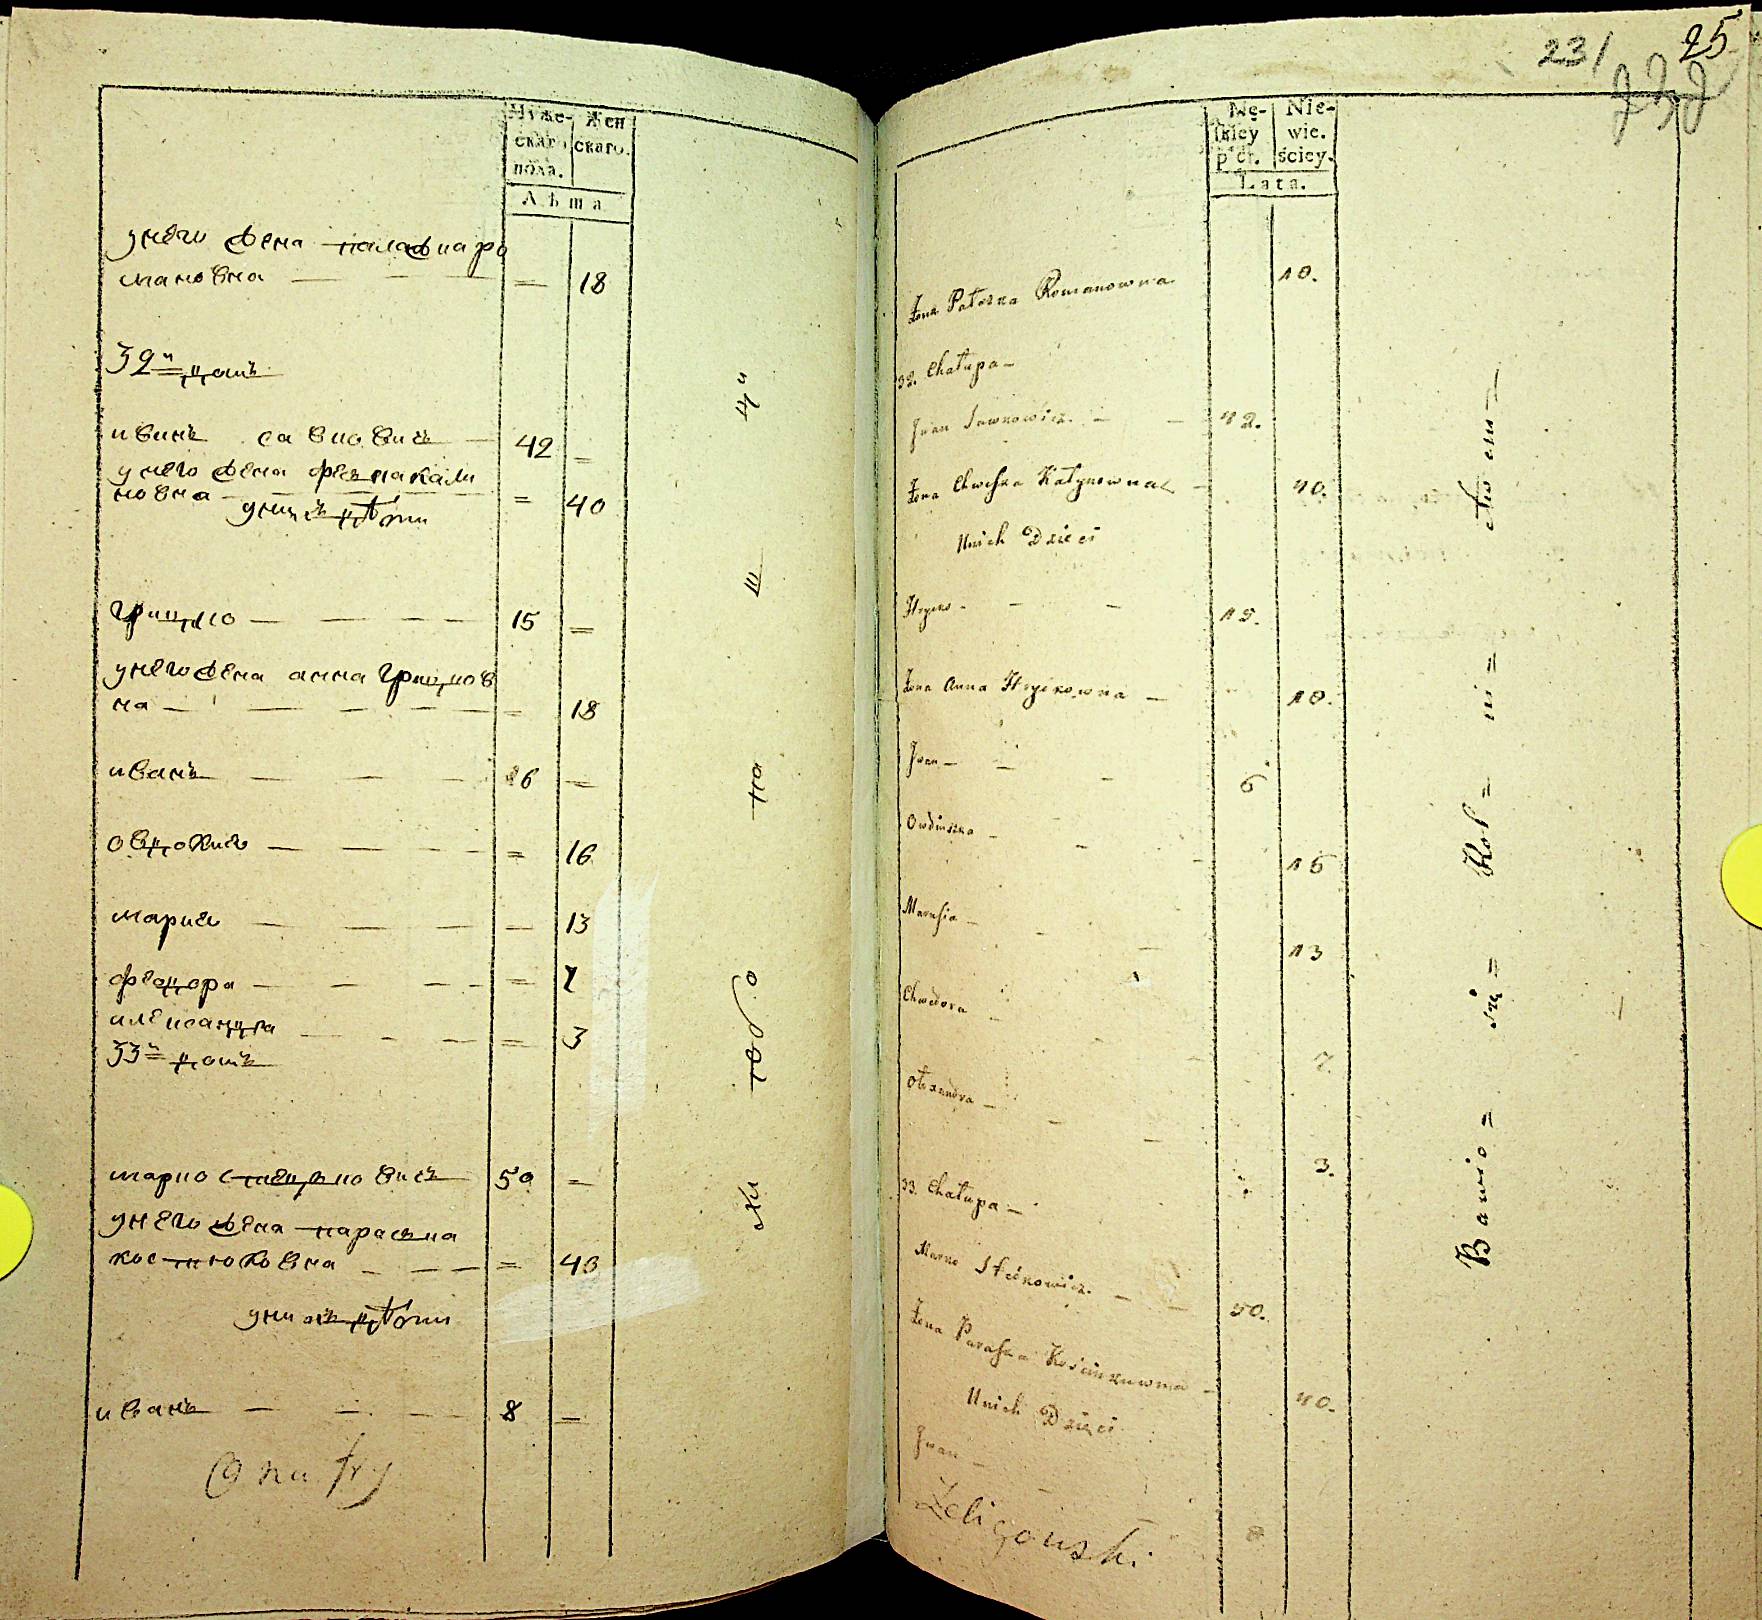 Муже-
скаго
пола.
Жен
скаго.
Лѣта
унего жена палажка ро
мановна — — — = 18
32й домъ
иванъ савковичъ — 42 =
унего жена феська кали
новна — — — = 40
унихъ дѣти
грицко — — — — 15 =
унего жена анна грицков
на — — — — = 18
иванъ — — — 6 =
овдокия — — — — = 16
мария — — — — 13
федора — — — — = 7
александра — — — = 3
33й домъ
марко стецковичъ 50 =
унего жена параська
костюковна — — — = 40
унихъ дѣти
иванъ — — — 8 —
Onufry
231
25
232
Męskiey
płci.
Nie-
wie.
ściey.
Lata.
Żona Pałaszka Romanowna 18.
32. Chałupa —
Jwan Sawkowicz — — 42.
Żona Chweska Kałynowna — 40.
Unich Dzieci
Hrycko — — — 15.
Żona Anna Hryckowna — 18.
Jwan — — — 6
Owdiuszka — — — 16
Marusia — — — 13
Chwedora — — 7.
Olexandra — — — 3.
33. Chałupa —
Marko Stećkowicz — — 50.
Żona Paraska Kościukuwna — 40.
Unich Dzieci
Jwan — 8
Żeligowski